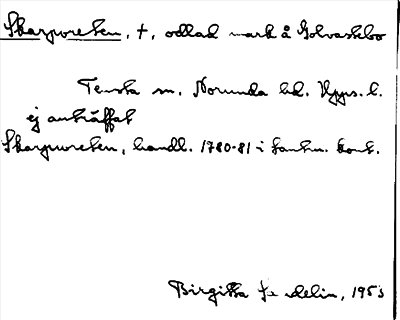 Skarpureten, †, odlad mark å Golvastebo
Tensta sn, Norunda hd. Upps. l.
ej anträffat
Skarpureten, handl. 1780-81 i Lantm. kont.
Birgitta 1953